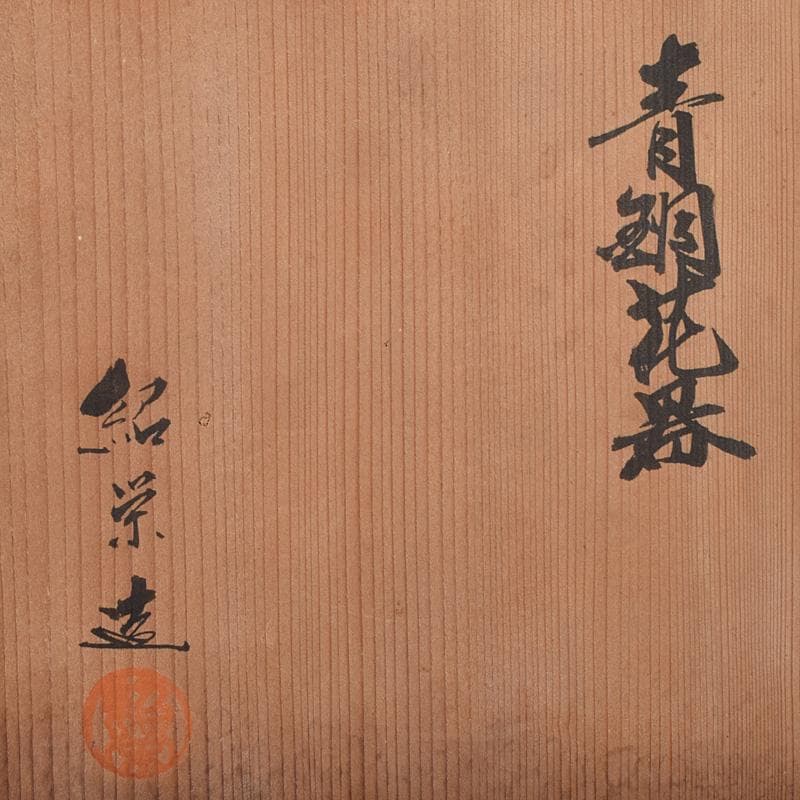 青銅花器
紹栄造